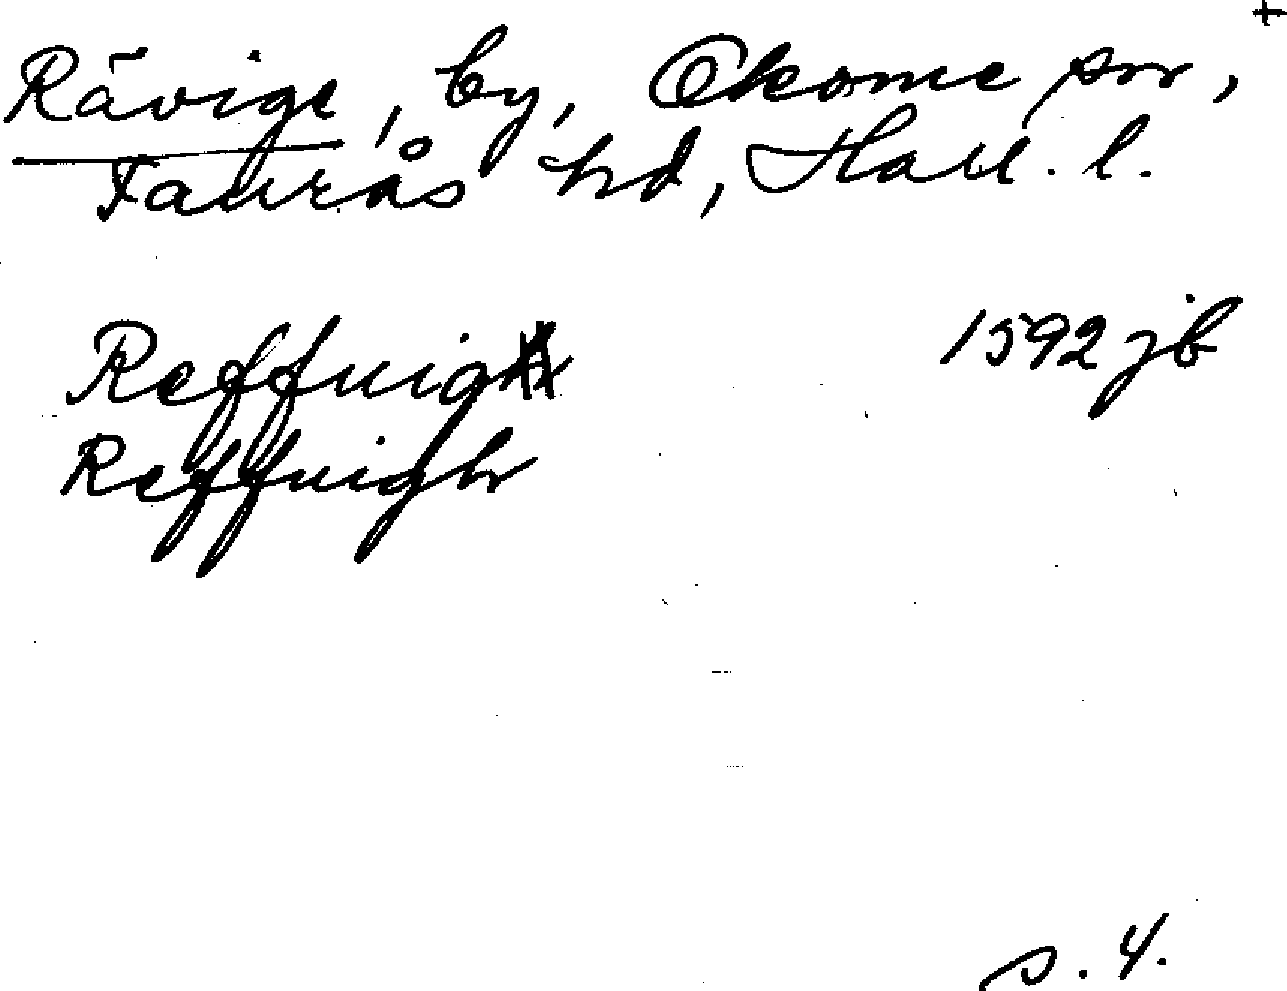 +
Rävige, by, Okome sn,
Faurås hd, Hall. l.
Reffuigh 1592 jb
Reffuigh
s. 4.